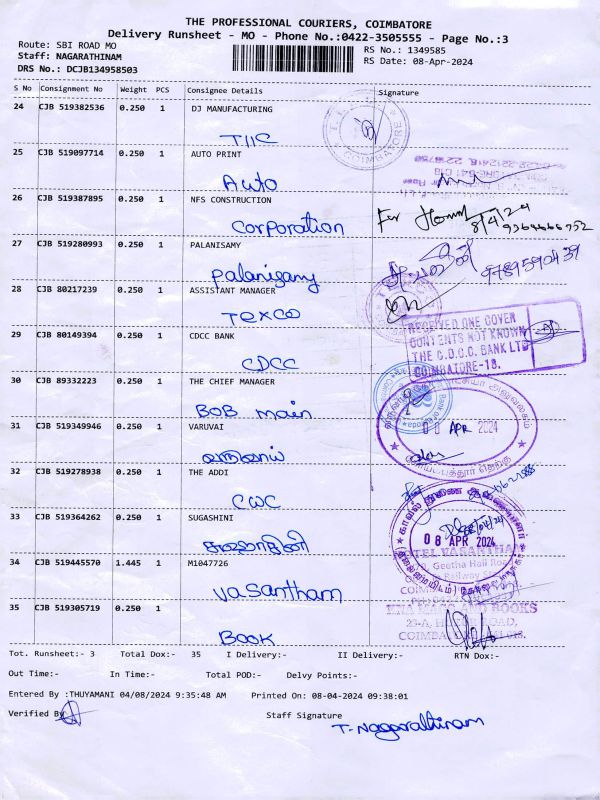 THE PROFESSIONAL COURIERS, COIMBATORE
Delivery Runsheet - MO - Phone No.:0422-3505555 - Page No.:3
Route: SBI ROAD MO
RS No.: 1349585
Staff: NAGARATHINAM
RS Date: 08-Apr-2024
DRS No.: DCJB134958503
S No Consignment No Weight PCS Consignee Details Signature
24 CJB 519382536 0.250 1 DJ MANUFACTURING
TIIC
COIMBATORE
25 CJB 519097714 0.250 1 AUTO PRINT
Auto
26 CJB 519387895 0.250 1 NFS CONSTRUCTION
Corporation
For
8/4/24
27 CJB 519280993 0.250 1 PALANISAMY
Palanisamy
9789590439
28 CJB 80217239 0.250 1 ASSISTANT MANAGER
TEXCO
29 CJB 80149394 0.250 1 CDCC BANK
CDCC
RECEIVED ONE COVER
CONTENTS NOT KNOWN
THE C.D.C.C. BANK LTD
COIMBATORE-18.
30 CJB 89332223 0.250 1 THE CHIEF MANAGER
BOB main
31 CJB 519349946 0.250 1 VARUVAI
08 APR 2024
32 CJB 519278938 0.250 1 THE ADDI
CWC
33 CJB 519364262 0.250 1 SUGASHINI
08 APR 2024
34 CJB 519445570 1.445 1 M1047726
Vasantham
HOTEL VASANTHAM
Geetha Hall Road
35 CJB 519305719 0.250 1
BOOK
AND BOOKS
Tot. Runsheet:- 3 Total Dox:- 35 I Delivery:- II Delivery:- RTN Dox:-
Out Time:- In Time:- Total POD:- Delvy Points:-
Entered By :THUYAMANI 04/08/2024 9:35:48 AM Printed On: 08-04-2024 09:38:01
Verified By
Staff Signature
T. Nagarathinam